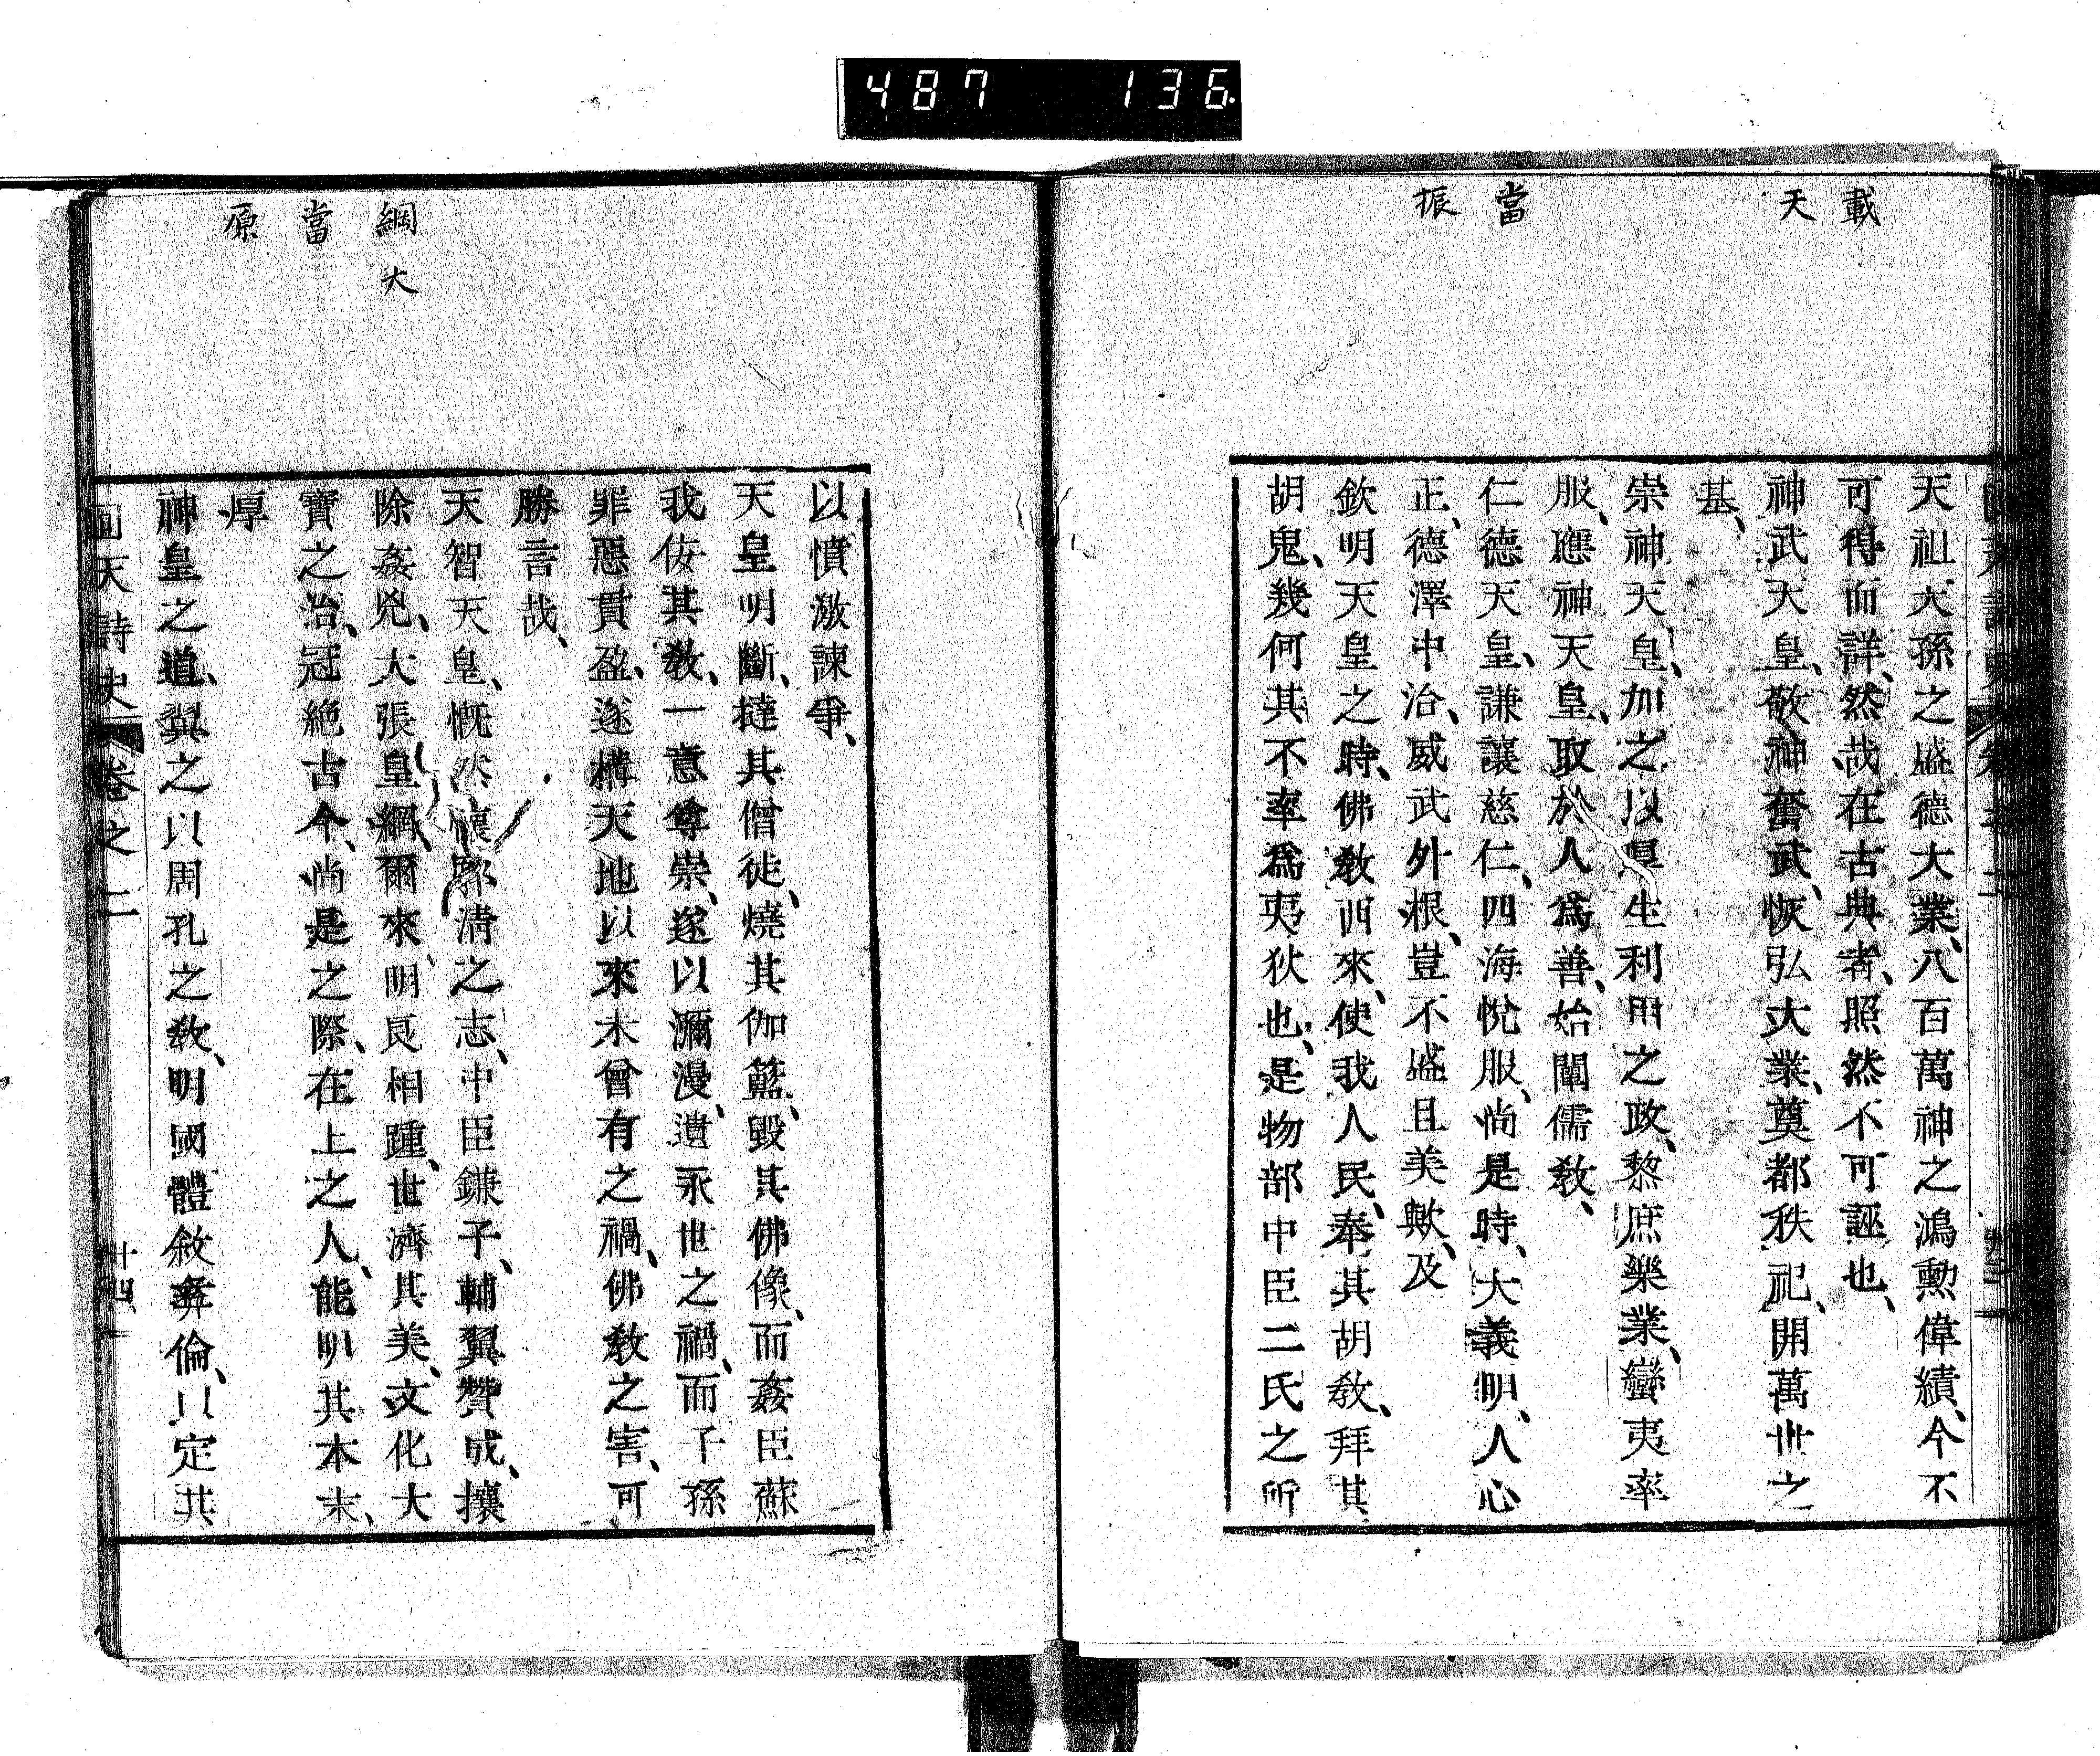 487 136.
載
天
當
振
天祖天孫之盛德大業、八百萬神之鴻勳偉績、今不
可得而詳、然哉在古典者、照然不可誣也、
神武天皇、敬神奮武、恢弘大業、奠都秩祀、開萬世之
基、
崇神天皇、加之以厚生利用之政、黎庶樂業、蠻夷率
服、應神天皇、取於人爲善、始闡儒敎、
仁德天皇、謙讓慈仁、四海悅服、尚是時、大義明、人心
正、德澤中治、威武外根、豈不盛且美歟、及
欽明天皇之時、佛敎西來、使我人民、奉其胡敎、拜其
胡鬼、幾何其不率爲夷狄也、是物部中臣二氏之所
綱 大
當
原
以憤激諫爭、
天皇明斷、撻其僧徒、燒其伽籃、毀其佛像、而姦臣蘇
我佞其敎、一意尊崇、遂以瀰漫、遺永世之禍、而子孫
罪惡貫盈、遂構天地以來未曾有之禍、佛敎之害、可
勝言哉、
天智天皇、慨然懷郭淸之志、中臣鎌子、輔翼贊成、攘
除姦兇、大張皇綱、爾來、明良相踵、世濟其美、文化大
寶之治、冠絕古今、尚是之際、在上之人、能明其本末、
厚
神皇之道、翼之以周孔之敎、明國體敘彝倫、以定其
回天詩史 卷之二 十四